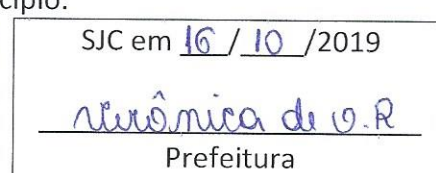 cípio.
SJC em 16/10/2019
Verônica de O.R
Prefeitura